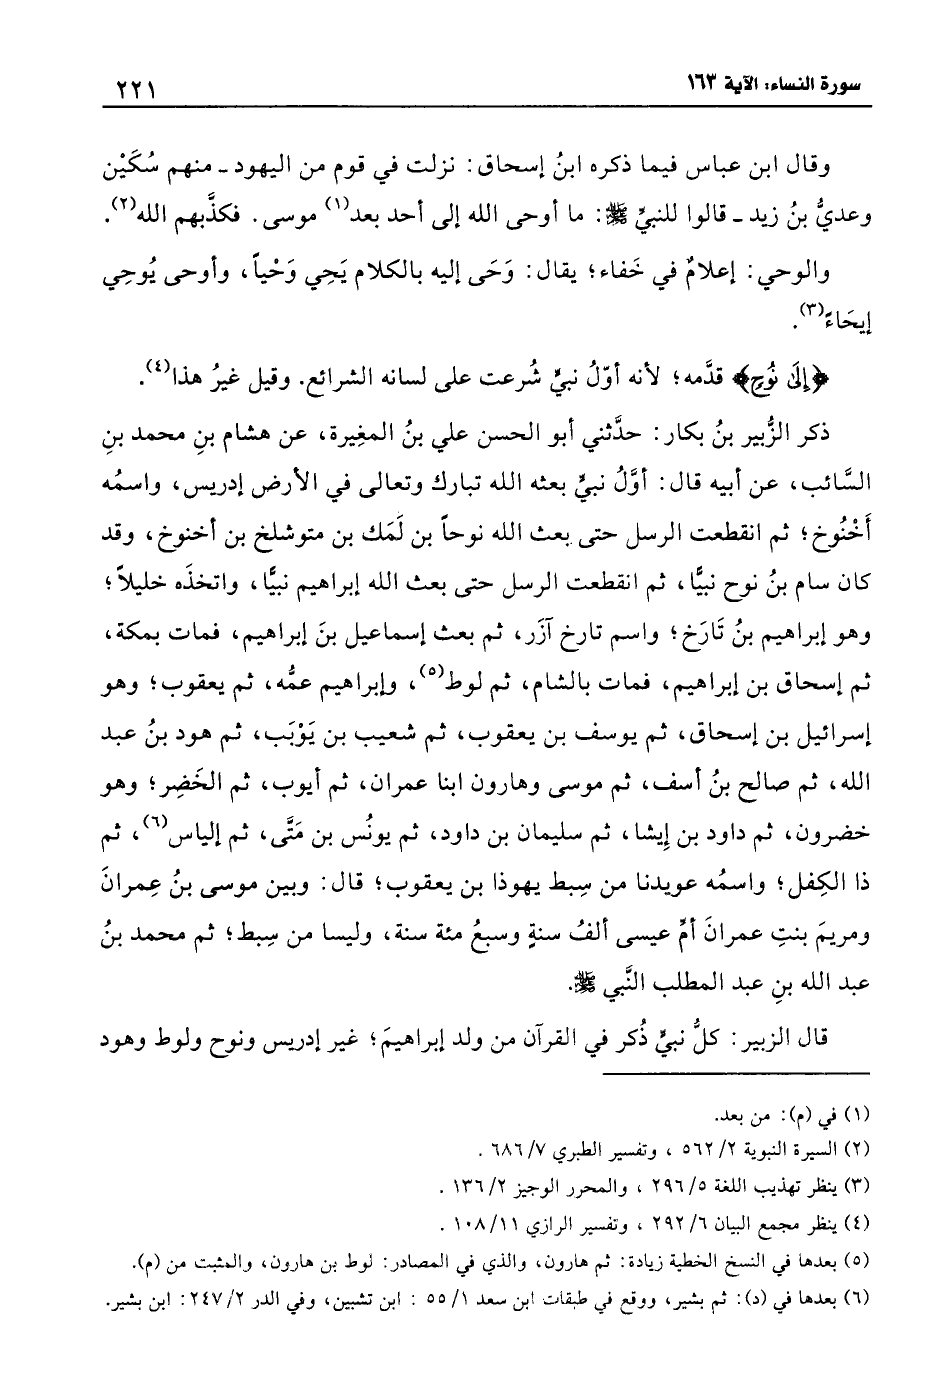 سورة النساء: الآية ١٦٣
٢٢١
وقال ابن عباس فيما ذكره ابنُ إسحاق: نزلت في قوم من اليهود ـ منهم سُكَيْن
وعديُّ بنُ زيد ـ قالوا للنبيِّ ﷺ: ما أوحى الله إلى أحد بعد(١) موسى. فكذَّبهم الله(٢).
والوحي: إعلامٌ في خَفاء؛ يقال: وَحَى إليه بالكلام يَحِي وَحْياً، وأوحى يُوحِي
إيحَاءً(٣).
﴿إِلَىٰ نُوحٍ﴾ قدَّمه؛ لأنه أوّلُ نبيٍّ شُرعت على لسانه الشرائع. وقيل غيرُ هذا(٤).
ذكر الزُّبير بنُ بكار: حدَّثني أبو الحسن علي بنُ المغِيرة، عن هشام بنِ محمد بنِ
السَّائب، عن أبيه قال: أوَّلُ نبيٍّ بعثه الله تبارك وتعالى في الأرض إدريس، واسمُه
أَخْنُوخ؛ ثم انقطعت الرسل حتى بعث الله نوحاً بن لَمَك بن متوشلخ بن أخنوخ، وقد
كان سام بنُ نوح نبيًّا، ثم انقطعت الرسل حتى بعث الله إبراهيم نبيًّا، واتخذَه خليلاً؛
وهو إبراهيم بنُ تَارَخ؛ واسم تارخ آزَر، ثم بعث إسماعيل بنَ إبراهيم، فمات بمكة،
ثم إسحاق بن إبراهيم، فمات بالشام، ثم لوط(٥)، وإبراهيم عمُّه، ثم يعقوب؛ وهو
إسرائيل بن إسحاق، ثم يوسف بن يعقوب، ثم شعيب بن يَوْبَب، ثم هود بنُ عبد
الله، ثم صالح بنُ أسف، ثم موسى وهارون ابنا عمران، ثم أيوب، ثم الخَضِر؛ وهو
خضرون، ثم داود بن إيشا، ثم سليمان بن داود، ثم يونُس بن مَتَّى، ثم إلياس(٦)، ثم
ذا الكِفل؛ واسمُه عويدنا من سِبط يهوذا بن يعقوب؛ قال: وبين موسى بنُ عِمرانَ
ومريمَ بنتِ عمرانَ أمِّ عيسى ألفُ سنةٍ وسبعُ مئة سنة، وليسا من سِبط؛ ثم محمد بنُ
عبد الله بنِ عبد المطلب النَّبي ﷺ.
قال الزبير: كلُّ نبيٍّ ذُكر في القرآن من ولد إبراهيمَ؛ غير إدريس ونوح ولوط وهود
(١) في (م): من بعد.
(٢) السيرة النبوية ٥٦٢/٢ ، وتفسير الطبري ٦٨٦/٧ .
(٣) ينظر تهذيب اللغة ٢٩٦/٥ ، والمحرر الوجيز ١٣٦/٢ .
(٤) ينظر مجمع البيان ٢٩٢/٦ ، وتفسير الرازي ١٠٨/١١ .
(٥) بعدها في النسخ الخطية زيادة: ثم هارون، والذي في المصادر: لوط بن هارون، والمثبت من (م).
(٦) بعدها في (د): ثم بشير، ووقع في طبقات ابن سعد ٥٥/١ : ابن تشبين، وفي الدر ٢٤٧/٢: ابن بشير.